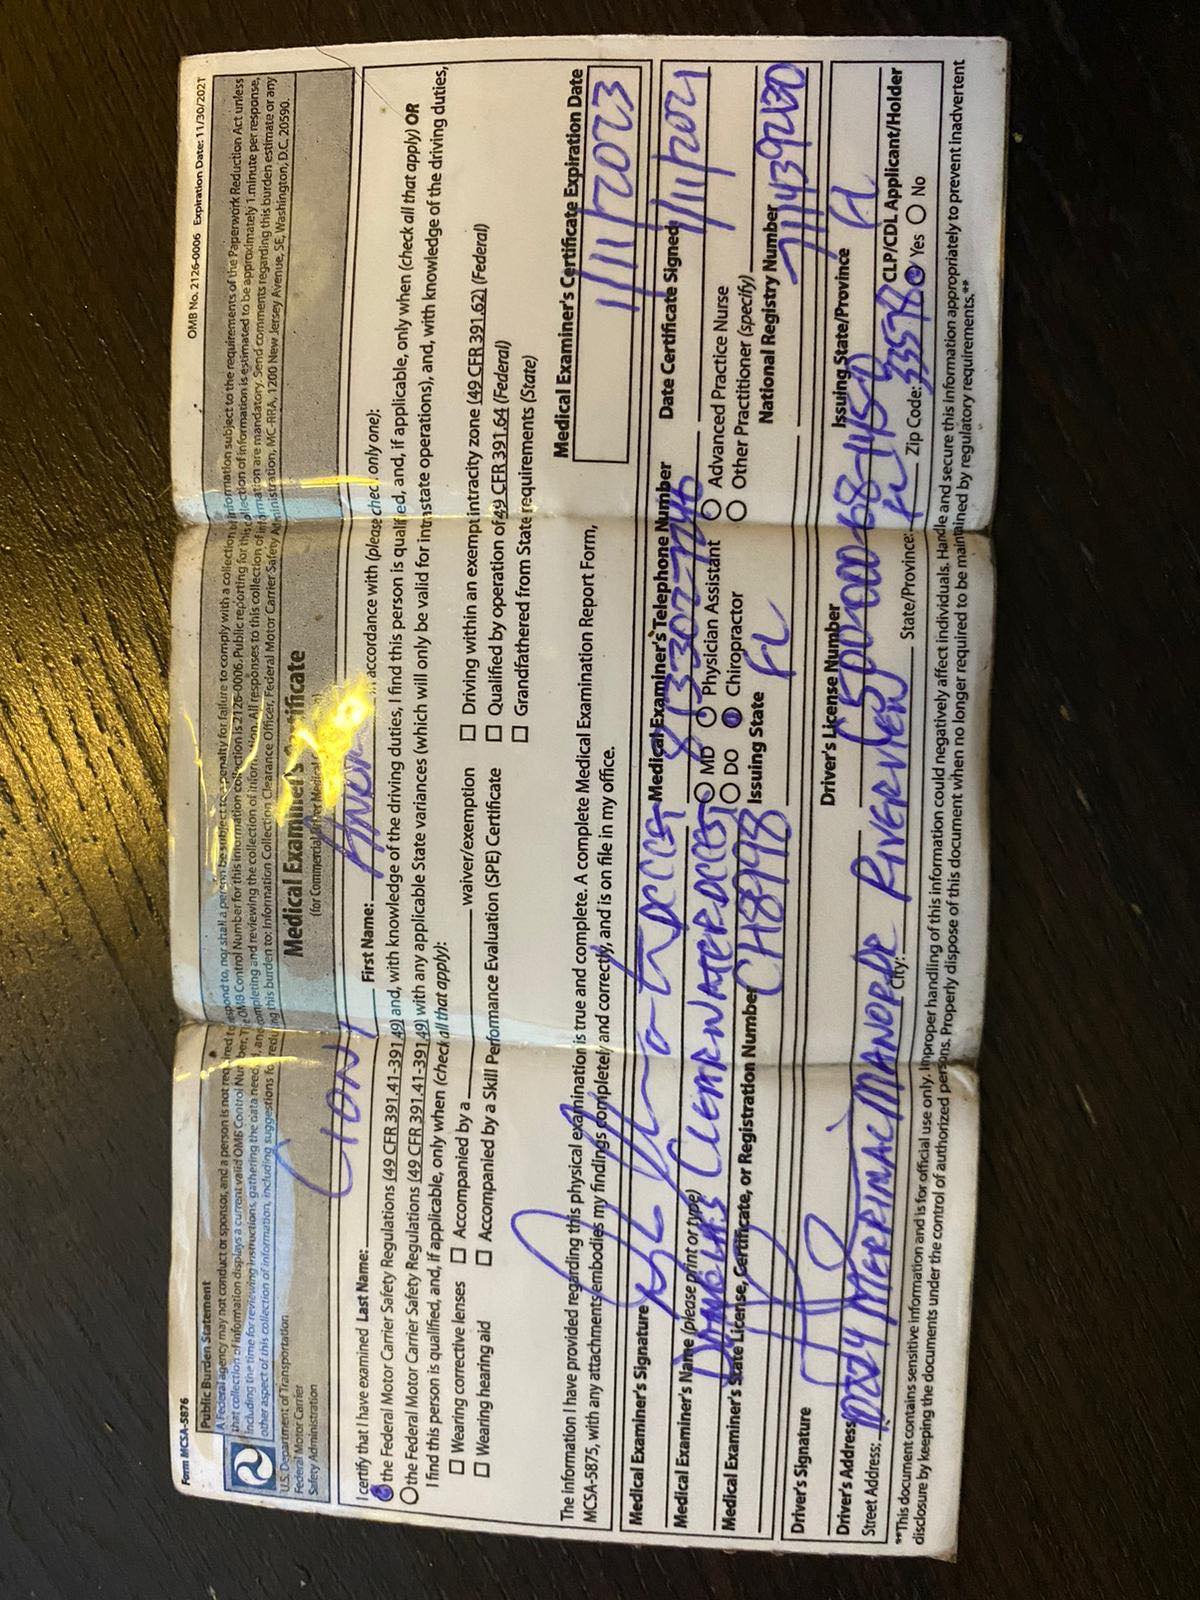 Form MCSA-5876
OMB No. 2126-0006 Expiration Date: 11/30/2021
Public Burden Statement
A Federal agency may not conduct or sponsor, and a person is not required to respond to, nor shall a person be subject to a penalty for failure to comply with a collection of information subject to the requirements of the Paperwork Reduction Act unless
that collection of information displays a current valid OMB Control Number. The OMB Control Number for this information collection is 2126-0006. Public reporting for this collection of information is estimated to be approximately 1 minute per response,
including the time for reviewing instructions, gathering the data needed, and completing and reviewing the collection of information. All responses to this collection of information are mandatory. Send comments regarding this burden estimate or any
other aspect of this collection of information, including suggestions for reducing this burden to: Information Collection Clearance Officer, Federal Motor Carrier Safety Administration, MC-RRA, 1200 New Jersey Avenue, SE, Washington, D.C. 20590.
U.S. Department of Transportation
Federal Motor Carrier
Safety Administration
Medical Examiner's Certificate
(for Commercial Driver Medical
I certify that I have examined Last Name: First Name: in accordance with (please check only one):
the Federal Motor Carrier Safety Regulations (49 CFR 391.41-391.49) and, with knowledge of the driving duties, I find this person is qualified, and, if applicable, only when (check all that apply) OR
the Federal Motor Carrier Safety Regulations (49 CFR 391.41-391.49) with any applicable State variances (which will only be valid for intrastate operations), and, with knowledge of the driving duties,
I find this person is qualified, and, if applicable, only when (check all that apply):
Wearing corrective lenses Accompanied by a waiver/exemption Driving within an exempt intracity zone (49 CFR 391.62) (Federal)
Wearing hearing aid Accompanied by a Skill Performance Evaluation (SPE) Certificate Qualified by operation of 49 CFR 391.64 (Federal)
Grandfathered from State requirements (State)
The information I have provided regarding this physical examination is true and complete. A complete Medical Examination Report Form,
MCSA-5875, with any attachments embodies my findings completely and correctly, and is on file in my office.
Medical Examiner's Certificate Expiration Date
1/11/2023
Medical Examiner's Signature Medical Examiner's Telephone Number Date Certificate Signed
1/11/2021
Medical Examiner's Name (please print or type)
MD Physician Assistant Advanced Practice Nurse
DO Chiropractor Other Practitioner (specify)
Medical Examiner's State License, Certificate, or Registration Number CH8998 Issuing State FL National Registry Number
Driver's Signature Driver's License Number Issuing State/Province FL
Driver's Address
Street Address: City: RIVERVIEW State/Province: FL Zip Code: 33578
CLP/CDL Applicant/Holder
Yes No
**This document contains sensitive information and is for official use only. Improper handling of this information could negatively affect individuals. Handle and secure this information appropriately to prevent inadvertent
disclosure by keeping the documents under the control of authorized persons. Properly dispose of this document when no longer required to be maintained by regulatory requirements.**